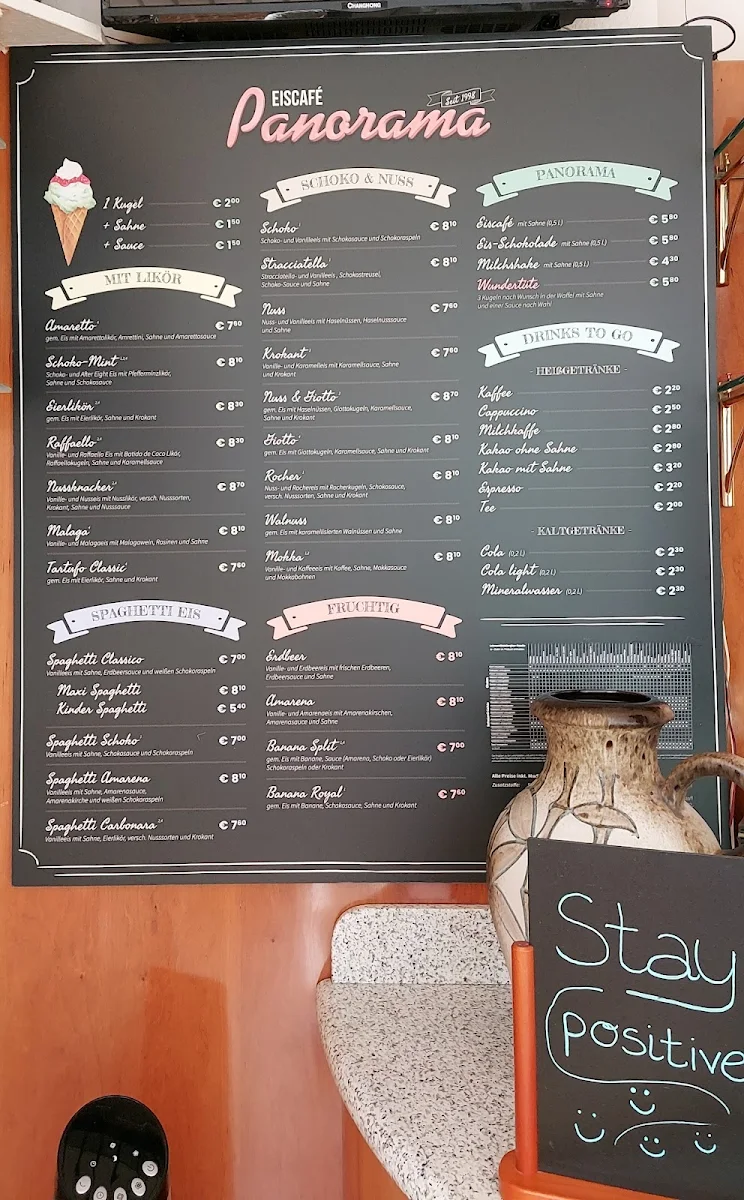 CHANGHONG
EISCAFÉ
Seit 1998
Panorama
1 Kugel € 2⁰⁰
+ Sahne € 1⁵⁰
+ Sauce € 1⁵⁰
MIT LIKÖR
Amaretto € 7⁶⁰
gem. Eis mit Amarettolikör, Amrettini, Sahne und Amarettosauce
Schoko-Mint € 8¹⁰
Schoko- und After Eight Eis mit Pfefferminzlikör,
Sahne und Schokosauce
Eierlikör € 8³⁰
gem. Eis mit Eierlikör, Sahne und Krokant
Raffaello € 8³⁰
Vanille- und Raffaello Eis mit Batida de Coco Likör,
Raffaellokugeln, Sahne und Karamellsauce
Nussknacker € 8⁷⁰
Vanille- und Nusseis mit Nusslikör, versch. Nusssorten,
Krokant, Sahne und Nusssauce
Malaga € 8¹⁰
Vanille- und Malagaeis mit Malagawein, Rosinen und Sahne
Tartufo Classic € 7⁶⁰
gem. Eis mit Eierlikör, Sahne und Krokant
SPAGHETTI EIS
Spaghetti Classico € 7⁰⁰
Vanilleeis mit Sahne, Erdbeersauce und weißen Schokoraspeln
Maxi Spaghetti € 8¹⁰
Kinder Spaghetti € 5⁴⁰
Spaghetti Schoko € 7⁰⁰
Vanilleeis mit Sahne, Schokosauce und Schokoraspeln
Spaghetti Amarena € 8¹⁰
Vanilleeis mit Sahne, Amarenasauce,
Amarenakirsche und weißen Schokoraspeln
Spaghetti Carbonara € 7⁶⁰
Vanilleeis mit Sahne, Eierlikör, versch. Nusssorten und Krokant
SCHOKO & NUSS
Schoko € 8¹⁰
Schoko- und Vanilleeis mit Schokosauce und Schokoraspeln
Stracciatella € 8¹⁰
Stracciatella- und Vanilleeis, Schokostreusel,
Schoko-Sauce und Sahne
Nuss € 7⁶⁰
Nuss- und Vanilleeis mit Haselnüssen, Haselnusssauce
und Sahne
Krokant € 7⁶⁰
Vanille- und Karameleis mit Karamellsauce, Sahne
und Krokant
Nuss & Giotto € 8⁷⁰
gem. Eis mit Haselnüssen, Giottokugeln, Karamellsauce,
Sahne und Krokant
Giotto € 8¹⁰
gem. Eis mit Giottokugeln, Karamellsauce, Sahne und Krokant
Rocher € 8¹⁰
Nuss- und Rochereis mit Rocherkugeln, Schokosauce,
versch. Nusssorten, Sahne und Krokant
Walnuss € 8¹⁰
gem. Eis mit karamellisierten Walnüssen und Sahne
Mokka € 8¹⁰
Vanille- und Kaffeeeis mit Kaffee, Sahne, Mokkasauce
und Mokkabohnen
FRUCHTIG
Erdbeer € 8¹⁰
Vanille- und Erdbeereis mit frischen Erdbeeren,
Erdbeersauce und Sahne
Amarena € 8¹⁰
Vanille- und Amarenaeis mit Amarenakirschen,
Amarenasauce und Sahne
Banana Split € 7⁰⁰
gem. Eis mit Banane, Sauce (Amarena, Schoko oder Eierlikör)
Schokoraspeln oder Krokant
Banana Royal € 7⁶⁰
gem. Eis mit Banane, Schokosauce, Sahne und Krokant
PANORAMA
Eiscafé mit Sahne (0,5 l) € 5⁸⁰
Eis-Schokolade mit Sahne (0,5 l) € 5⁸⁰
Milchshake mit Sahne (0,5 l) € 4³⁰
Wundertüte € 5⁸⁰
3 Kugeln nach Wunsch in der Waffel mit Sahne
und einer Sauce nach Wahl
DRINKS TO GO
- HEIßGETRÄNKE -
Kaffee € 2²⁰
Cappuccino € 2⁵⁰
Milchkaffe € 2⁸⁰
Kakao ohne Sahne € 2⁸⁰
Kakao mit Sahne € 3²⁰
Espresso € 2²⁰
Tee € 2⁰⁰
- KALTGETRÄNKE -
Cola (0,2 l) € 2³⁰
Cola light (0,2 l) € 2³⁰
Mineralwasser (0,2 l) € 2³⁰
Alle Preise inkl.
Zusatzstoffe:
Stay
positive